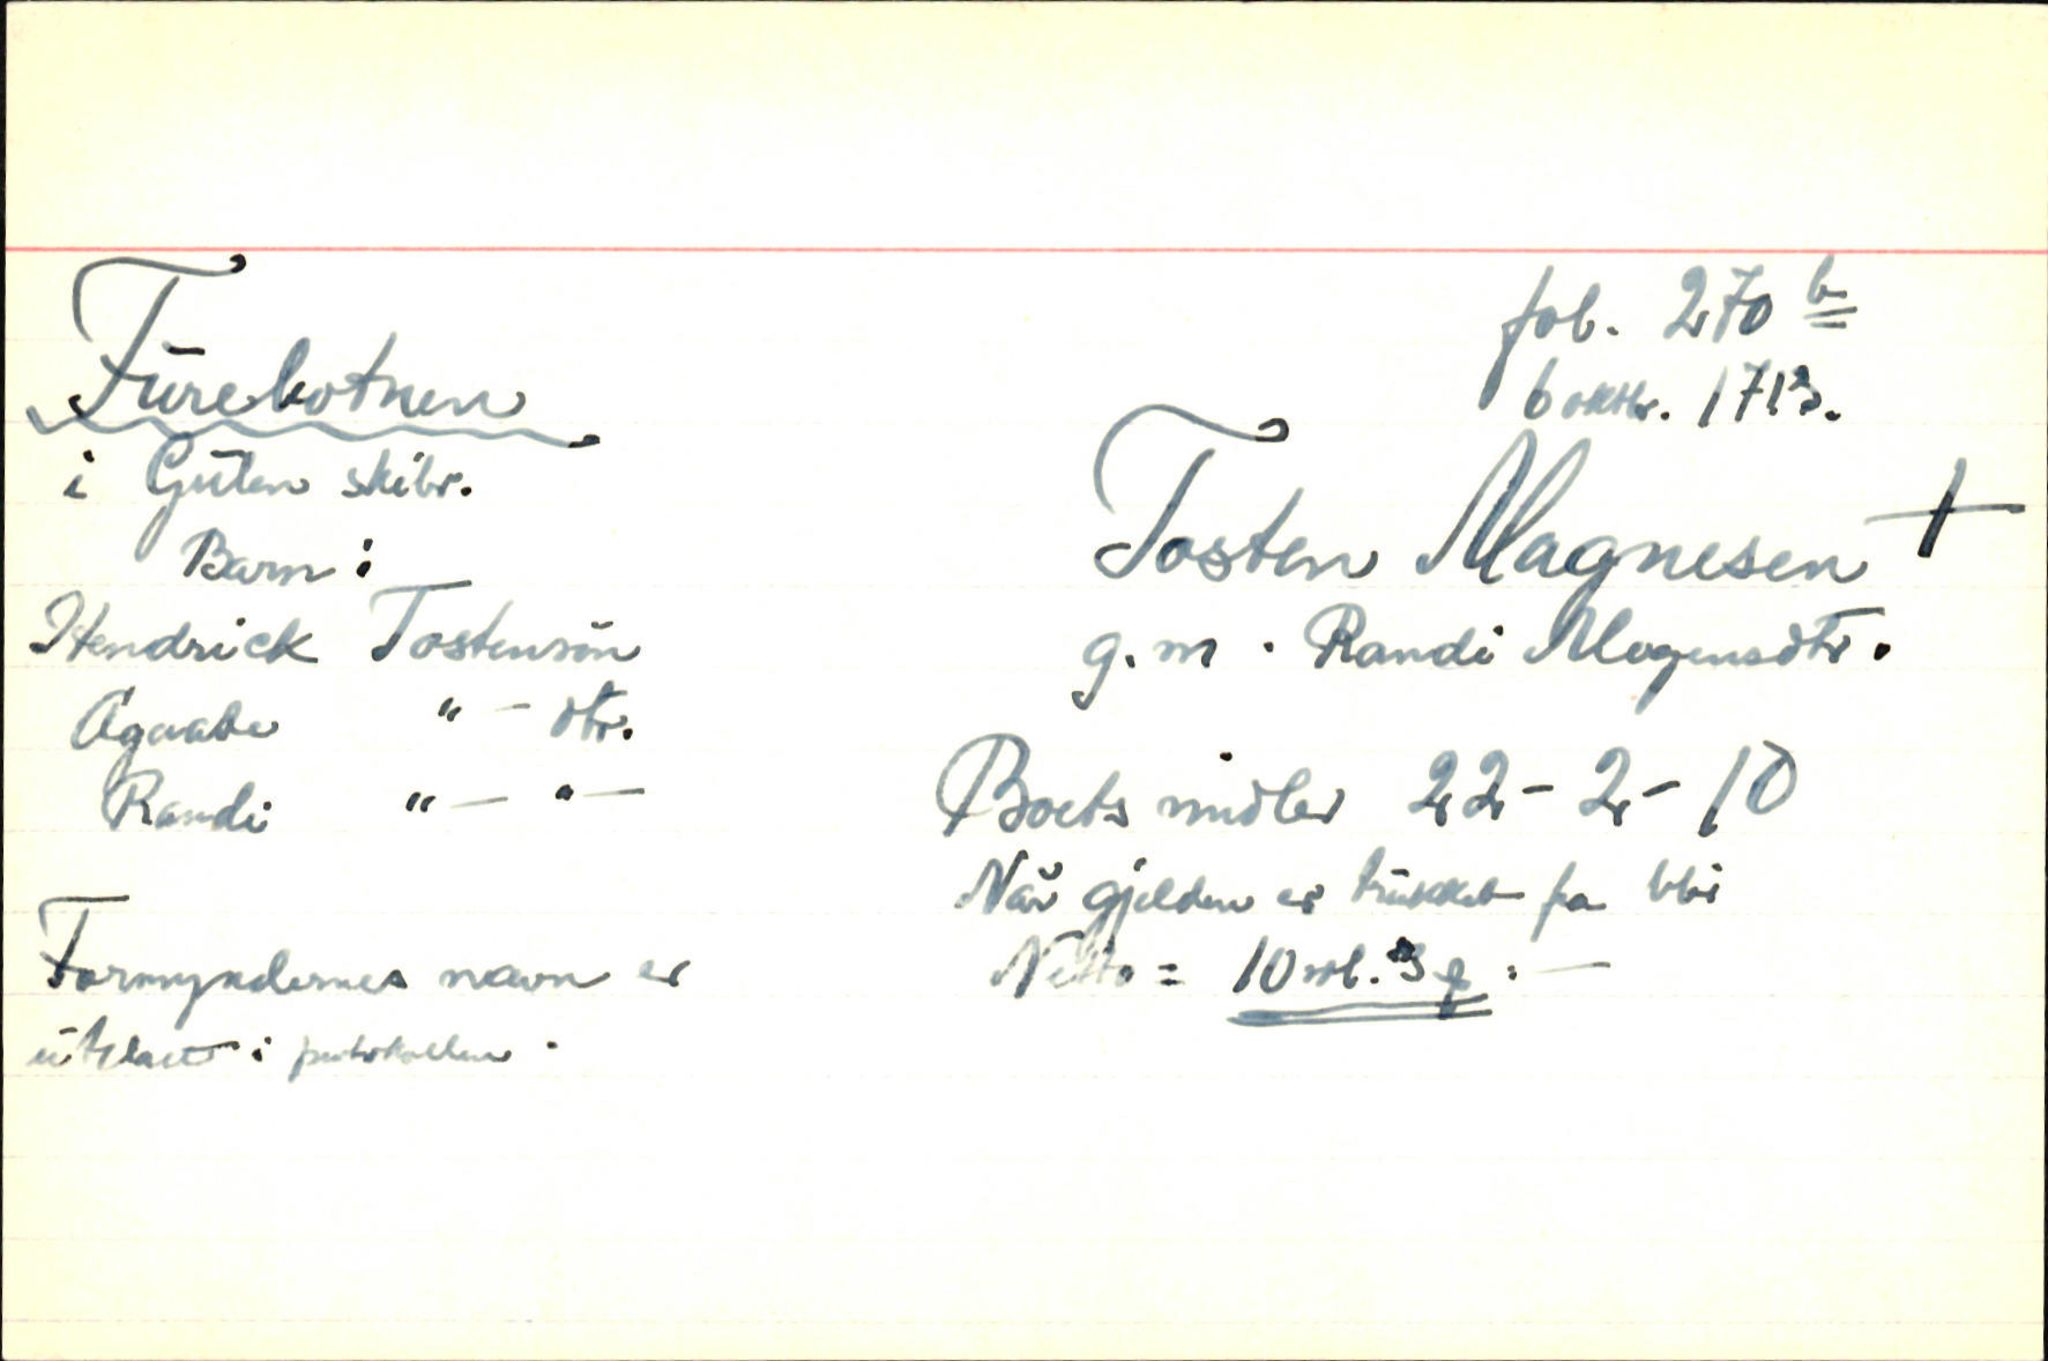 Furebotnen
i Gulen skibr.
Barn:
Hendrick Tostensön
Agaate " - dtr.
Randi " — " —
Formyndernes navn er
utelatt i protokollen.
fol. 270 b
6 oktbr. 1713.
Tosten Magnesen +
g. m. Randi Mogensdtr.
Boets midler 22 - 2 - 10
Når gjelden er trukket fra blir
Netto = 10 rdl. 3 :—